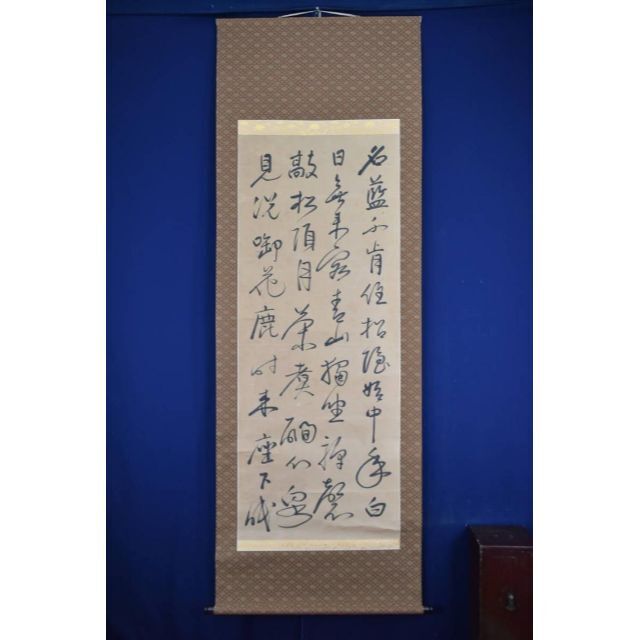 名藍不肯住招隱始中年白
日無來客青山獨坐禅磬
敲松頂月茶煮磵心泉
見説啣花鹿時来座下眠